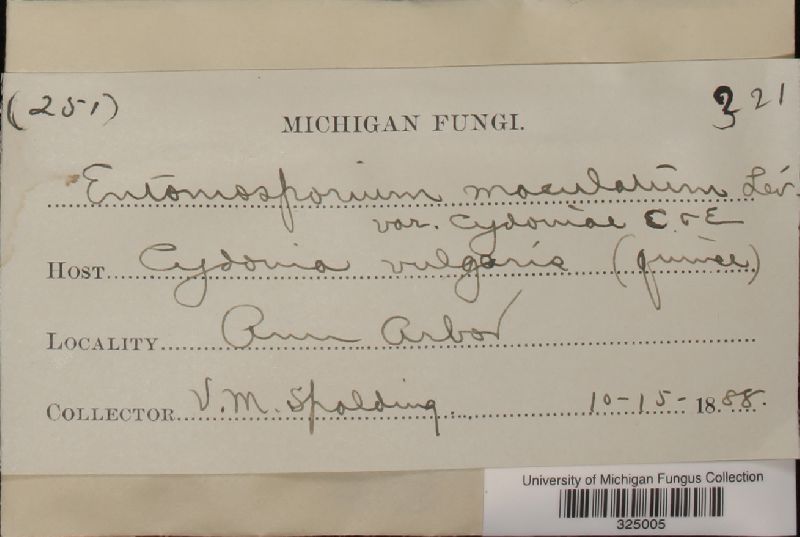 (251)
MICHIGAN FUNGI.
321
Entomosporium maculatum Lév.
var. Cydoniae C. & E
HOST Cydonia vulgaris (quince)
LOCALITY Ann Arbor
COLLECTOR V. M. Spalding 10-15-1888.
University of Michigan Fungus Collection
325005